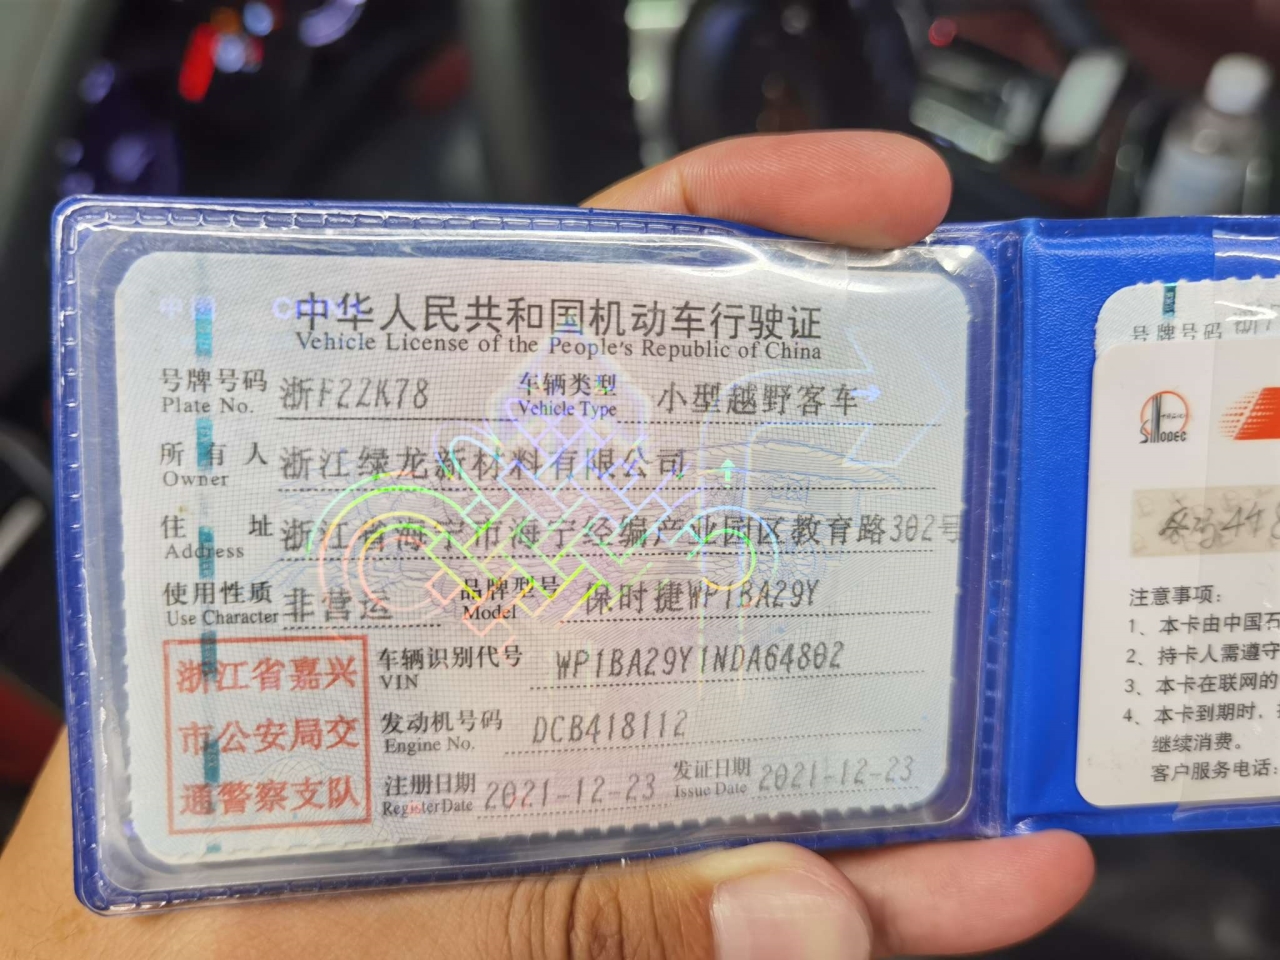 中国 CHINA
中华人民共和国机动车行驶证
Vehicle License of the People's Republic of China
号牌号码 浙F2ZK78 车辆类型 小型越野客车
Plate No. Vehicle Type
所有人 浙江绿龙新材料有限公司
Owner
住址 浙江省海宁市海宁经编产业园区教育路302号
Address
使用性质 非营运 品牌型号 保时捷WP1BA29Y
Use Character Model
浙江省嘉兴
市公安局交
通警察支队
车辆识别代号 WP1BA29Y1NDA64802
VIN
发动机号码 DCB418112
Engine No.
注册日期 2021-12-23 发证日期 2021-12-23
Register Date Issue Date
号牌号码 浙
SINOPEC
注意事项:
1、本卡由中国石
2、持卡人需遵守
3、本卡在联网的
4、本卡到期时，
继续消费。
客户服务电话: